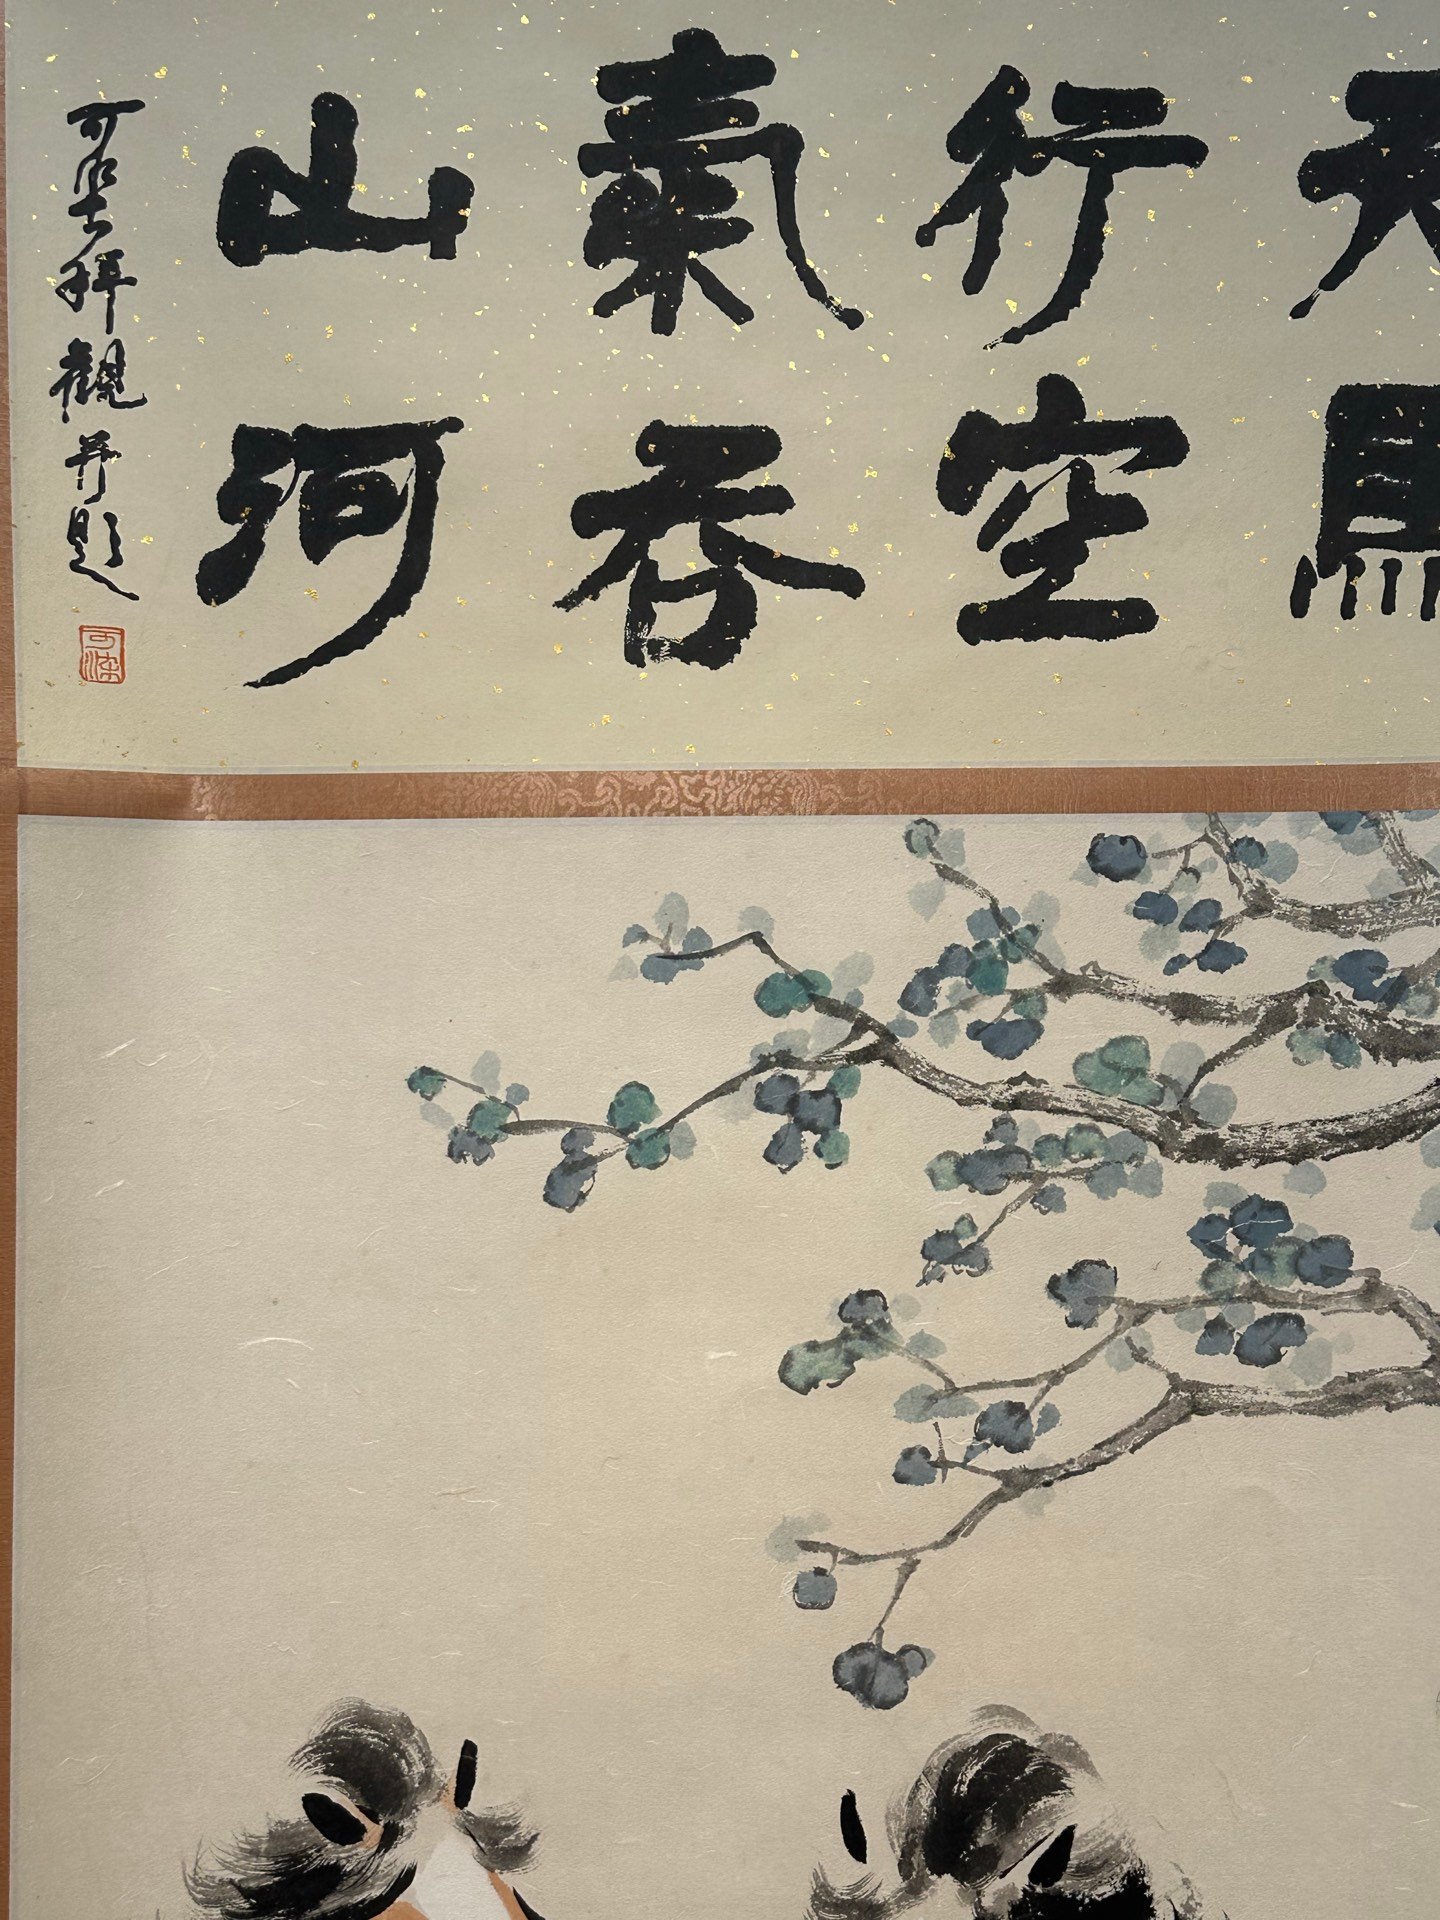 天馬
行空
氣吞
山河
可染拜觀并題
可染